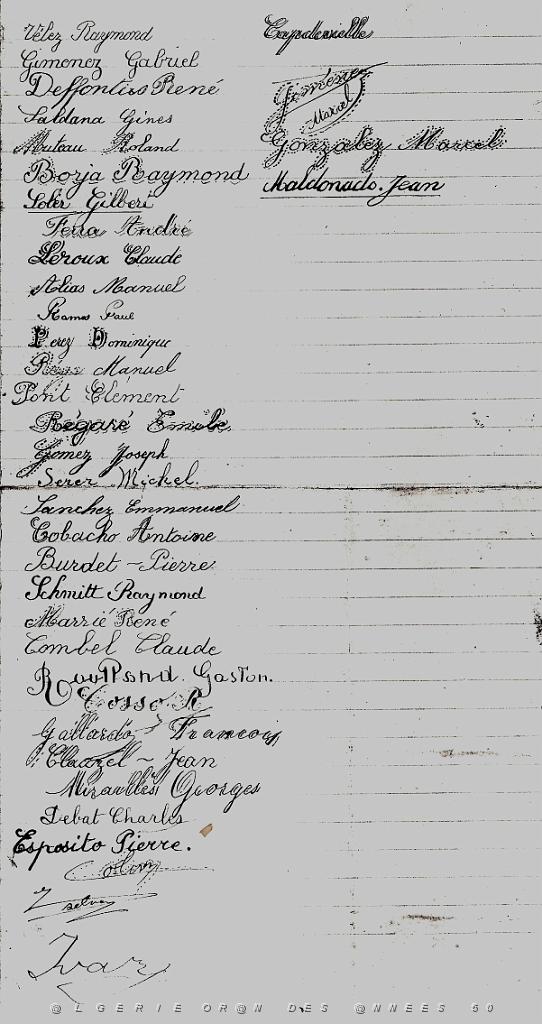 Vélez Raymond
Gimonez Gabriel
Deffontiss René
Saldana Gines
Muteau Roland
Borja Raymond
Soler Gilbert
Ferra André
Leroux Claude
Alias Manuel
Ramos Paul
Perez Dominique
Manuel
Pont Clément
Bégasé Emile
Gomez Joseph
Serer Michel.
Sanchez Emmanuel
Cobacho Antoine
Burdet - Pierre
Schmitt Raymond
Marrié René
Combel Claude
Gaston.
Cosso. R
Gallardo Francois
Clauzel - Jean
Miralles Georges
Debat Charles
Esposito Pierre.
Capdevielle
Jiménez
Marcel
Gonzalez Marcel
Maldonado. Jean
@LGERIE OR@N DES @NNEES 50